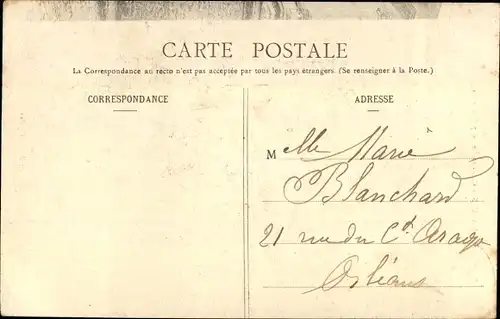 CARTE POSTALE
La Correspondance au recto n'est pas acceptée par tous les pays étrangers. (Se renseigner à la Poste.)
CORRESPONDANCE
ADRESSE
Melle Marie
Blanchard
21 rue du Cd. Arago
Orléans